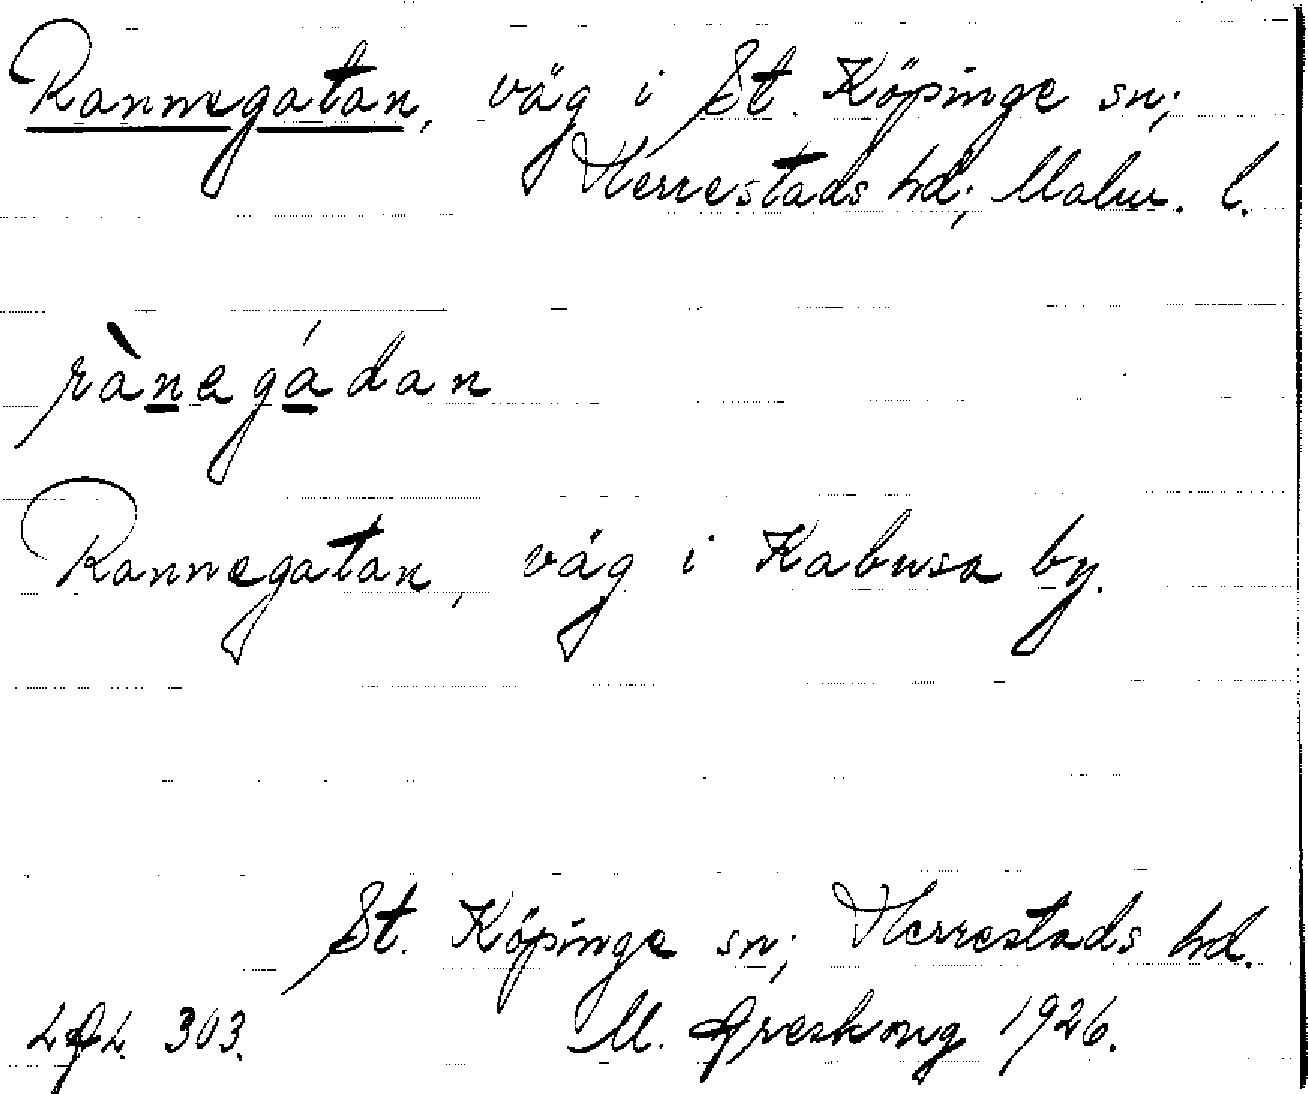 Rannegatan, väg i St. Köpinge sn;
Herrestads hd; Malm. l.
rànegádan
Rannegatan, väg i Kabusa by.
St. Köpinge sn; Herrestads hd.
303. M. 1926.